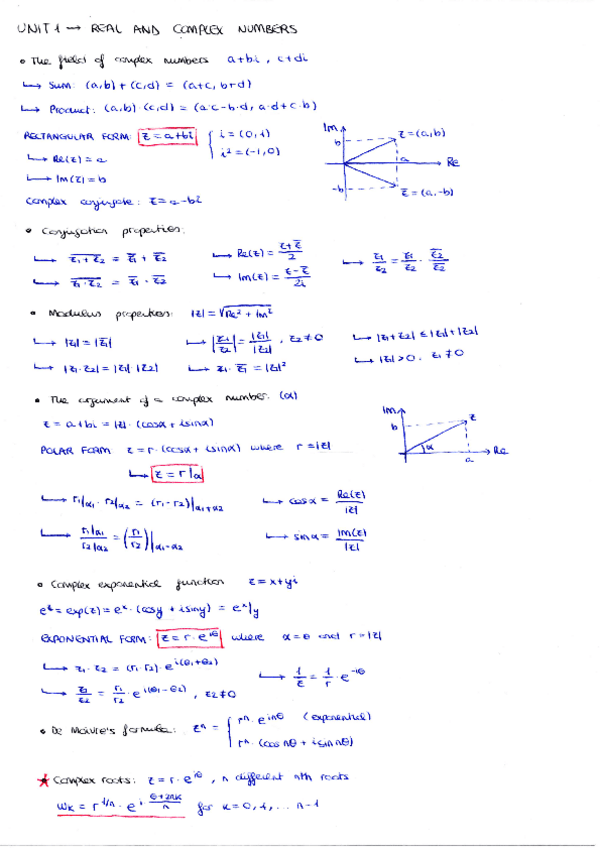 UNIT 1 → REAL AND COMPLEX NUMBERS
• The field of complex numbers a+bi, c+di
↳ Sum: (a,b)+(c,d) = (a+c, b+d)
↳ Product: (a,b)·(c,d) = (a·c-b·d, a·d+c·b)
RECTANGULAR FORM: z=a+bi { i=(0,1)
i²=(-1,0)
↳ Re(z)=a
↳ Im(z)=b
Complex conjugate: z̅=a-bi
Im
b
z=(a,b)
a
Re
-b
z̅=(a,-b)
• Conjugation properties:
↳ \overline{z1+z2} = z̅1 + z̅2
↳ Re(z) = (z+z̅)/2
↳ z1/z2 = z1/z2 · z̅2/z̅2
↳ \overline{z1·z2} = z̅1 · z̅2
↳ Im(z) = (z-z̅)/2i
• Modulus properties: |z| = √(Re²+Im²)
↳ |z1| = |z̅1|
↳ |z1/z2| = |z1|/|z2|, z2≠0
↳ |z1+z2| ≤ |z1|+|z2|
↳ |z1·z2| = |z1|·|z2|
↳ z1·z̅1 = |z1|²
↳ |z1|>0. z1≠0
• The argument of a complex number: (α)
z = a+bi = |z|·(cosα + isinα)
POLAR FORM z=r·(cosα + isinα) where r=|z|
↳ z=r|α
Im
b
z
α
a
Re
↳ r1|α1 · r2|α2 = (r1·r2)|α1+α2
↳ cosα = Re(z)/|z|
↳ r1|α1 / r2|α2 = (r1/r2)|α1-α2
↳ sinα = Im(z)/|z|
• Complex exponential function z=x+yi
e^z = exp(z) = e^x·(cosy + isiny) = e^x|y
EXPONENTIAL FORM: z=r·e^{iθ} where α=θ and r=|z|
↳ z1·z2 = (r1·r2)·e^{i(θ1+θ2)}
↳ 1/z = 1/r · e^{-iθ}
↳ z1/z2 = r1/r2 · e^{i(θ1-θ2)}, z2≠0
• De Moivre's formula: z^n = { r^n·e^{inθ} (exponential)
r^n·(cos nθ + isin nθ)
★ Complex roots: z=r·e^{iθ}, n different nth roots
wk = r^{1/n}·e^{i·(θ+2πk)/n} for k=0,1,... n-1